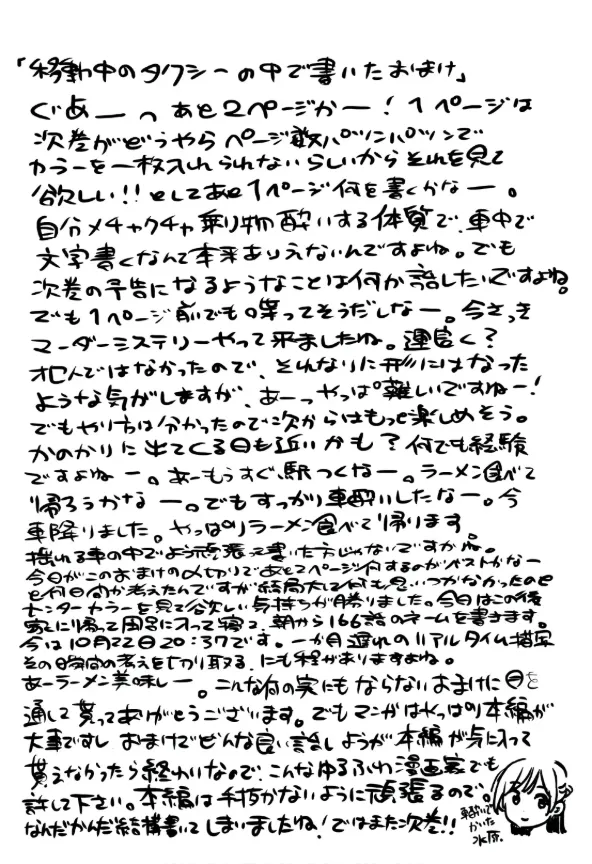 「移動中のタクシーの中で書いたおまけ」
ぐあーっ あと2ページかー！1ページは
次巻がどうやらページ数パツンパツンで
カラーを一枚入れられないらしいからそれを見て
欲しい!!としてあと1ページ何を書くかなー。
自分メチャクチャ乗り物酔いする体質で、車中で
文字書くなんて本来ありえないんですよね。でも
次巻の予告になるようなことは何か話したいですよね。
でも1ページ前でも喋ってそうだしなー。今さっき
マーダーミステリーやって来ましたね。運良く？
犯人ではなかったので、それなりに形にはなった
ような気がしますが、あーっやっぱ難しいですねー！
でもやり方は分かったので次からはもっと楽しめそう。
かのかりに出てくる日も近いかも？何でも経験
ですよねー。あーもうすぐ駅つくなー。ラーメン食べて
帰ろうかなー。でもすっかり車酔いしたなー。今
車降りました。やっぱりラーメン食べて帰ります
揺れる車の中でよう頑張って書いた方じゃないですか。
今日がこのおまけの〆切りであと1ページ何するのがベストかなー
と何日間か考えたんですが結局大して何も思いつかなかったのと
センターカラーを見て欲しい気持ちが勝りました。今日はこの後
家に帰って風呂に入って寝て、朝から166話のネームを書きます。
今は10月22日20:37です。一か月遅れのリアルタイム描写
その瞬間の考えを切り取る、にも程がありますよね。
あーラーメン美味しー。こんな何の実にもならないおまけに目を
通して貰ってありがとうございます。でもマンガはやっぱり本編が
大事ですし、おまけでどんな言い話しようが本編が気に入って
貰えなかったら終わりなので、こんなゆるふわ漫画家でも
許して下さい。本編は手抜かないように頑張るので。
なんだかんだ結構書いてしまいましたね！ではまた次巻!!
酔いて
かいた
水原.